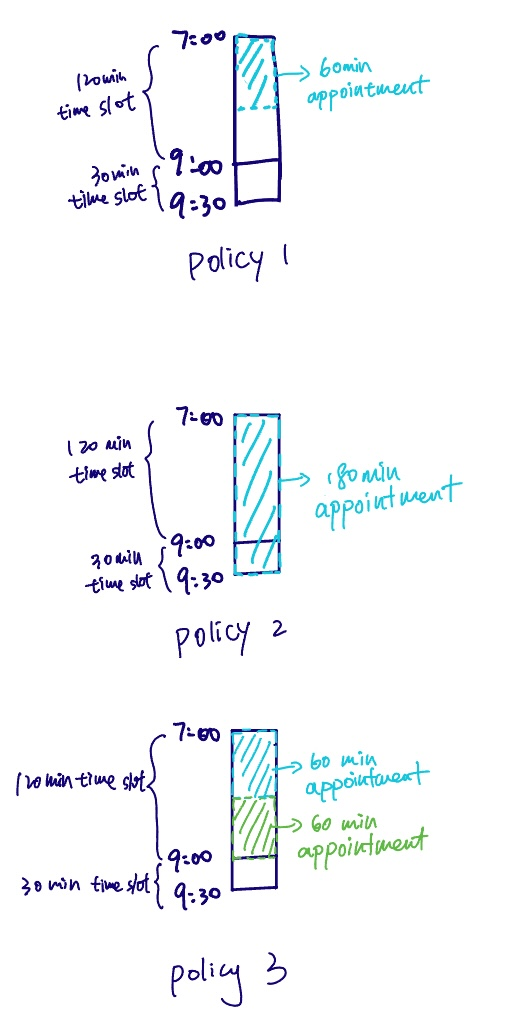 7:00
120min
time slot
60min
appointment
9:00
30min
time slot
9:30
policy 1
7:00
120 min
time slot
180min
appointment
9:00
30min
time slot
9:30
policy 2
7:00
60 min
appointment
120min time slot
60 min
appointment
9:00
30 min time slot
9:30
policy 3